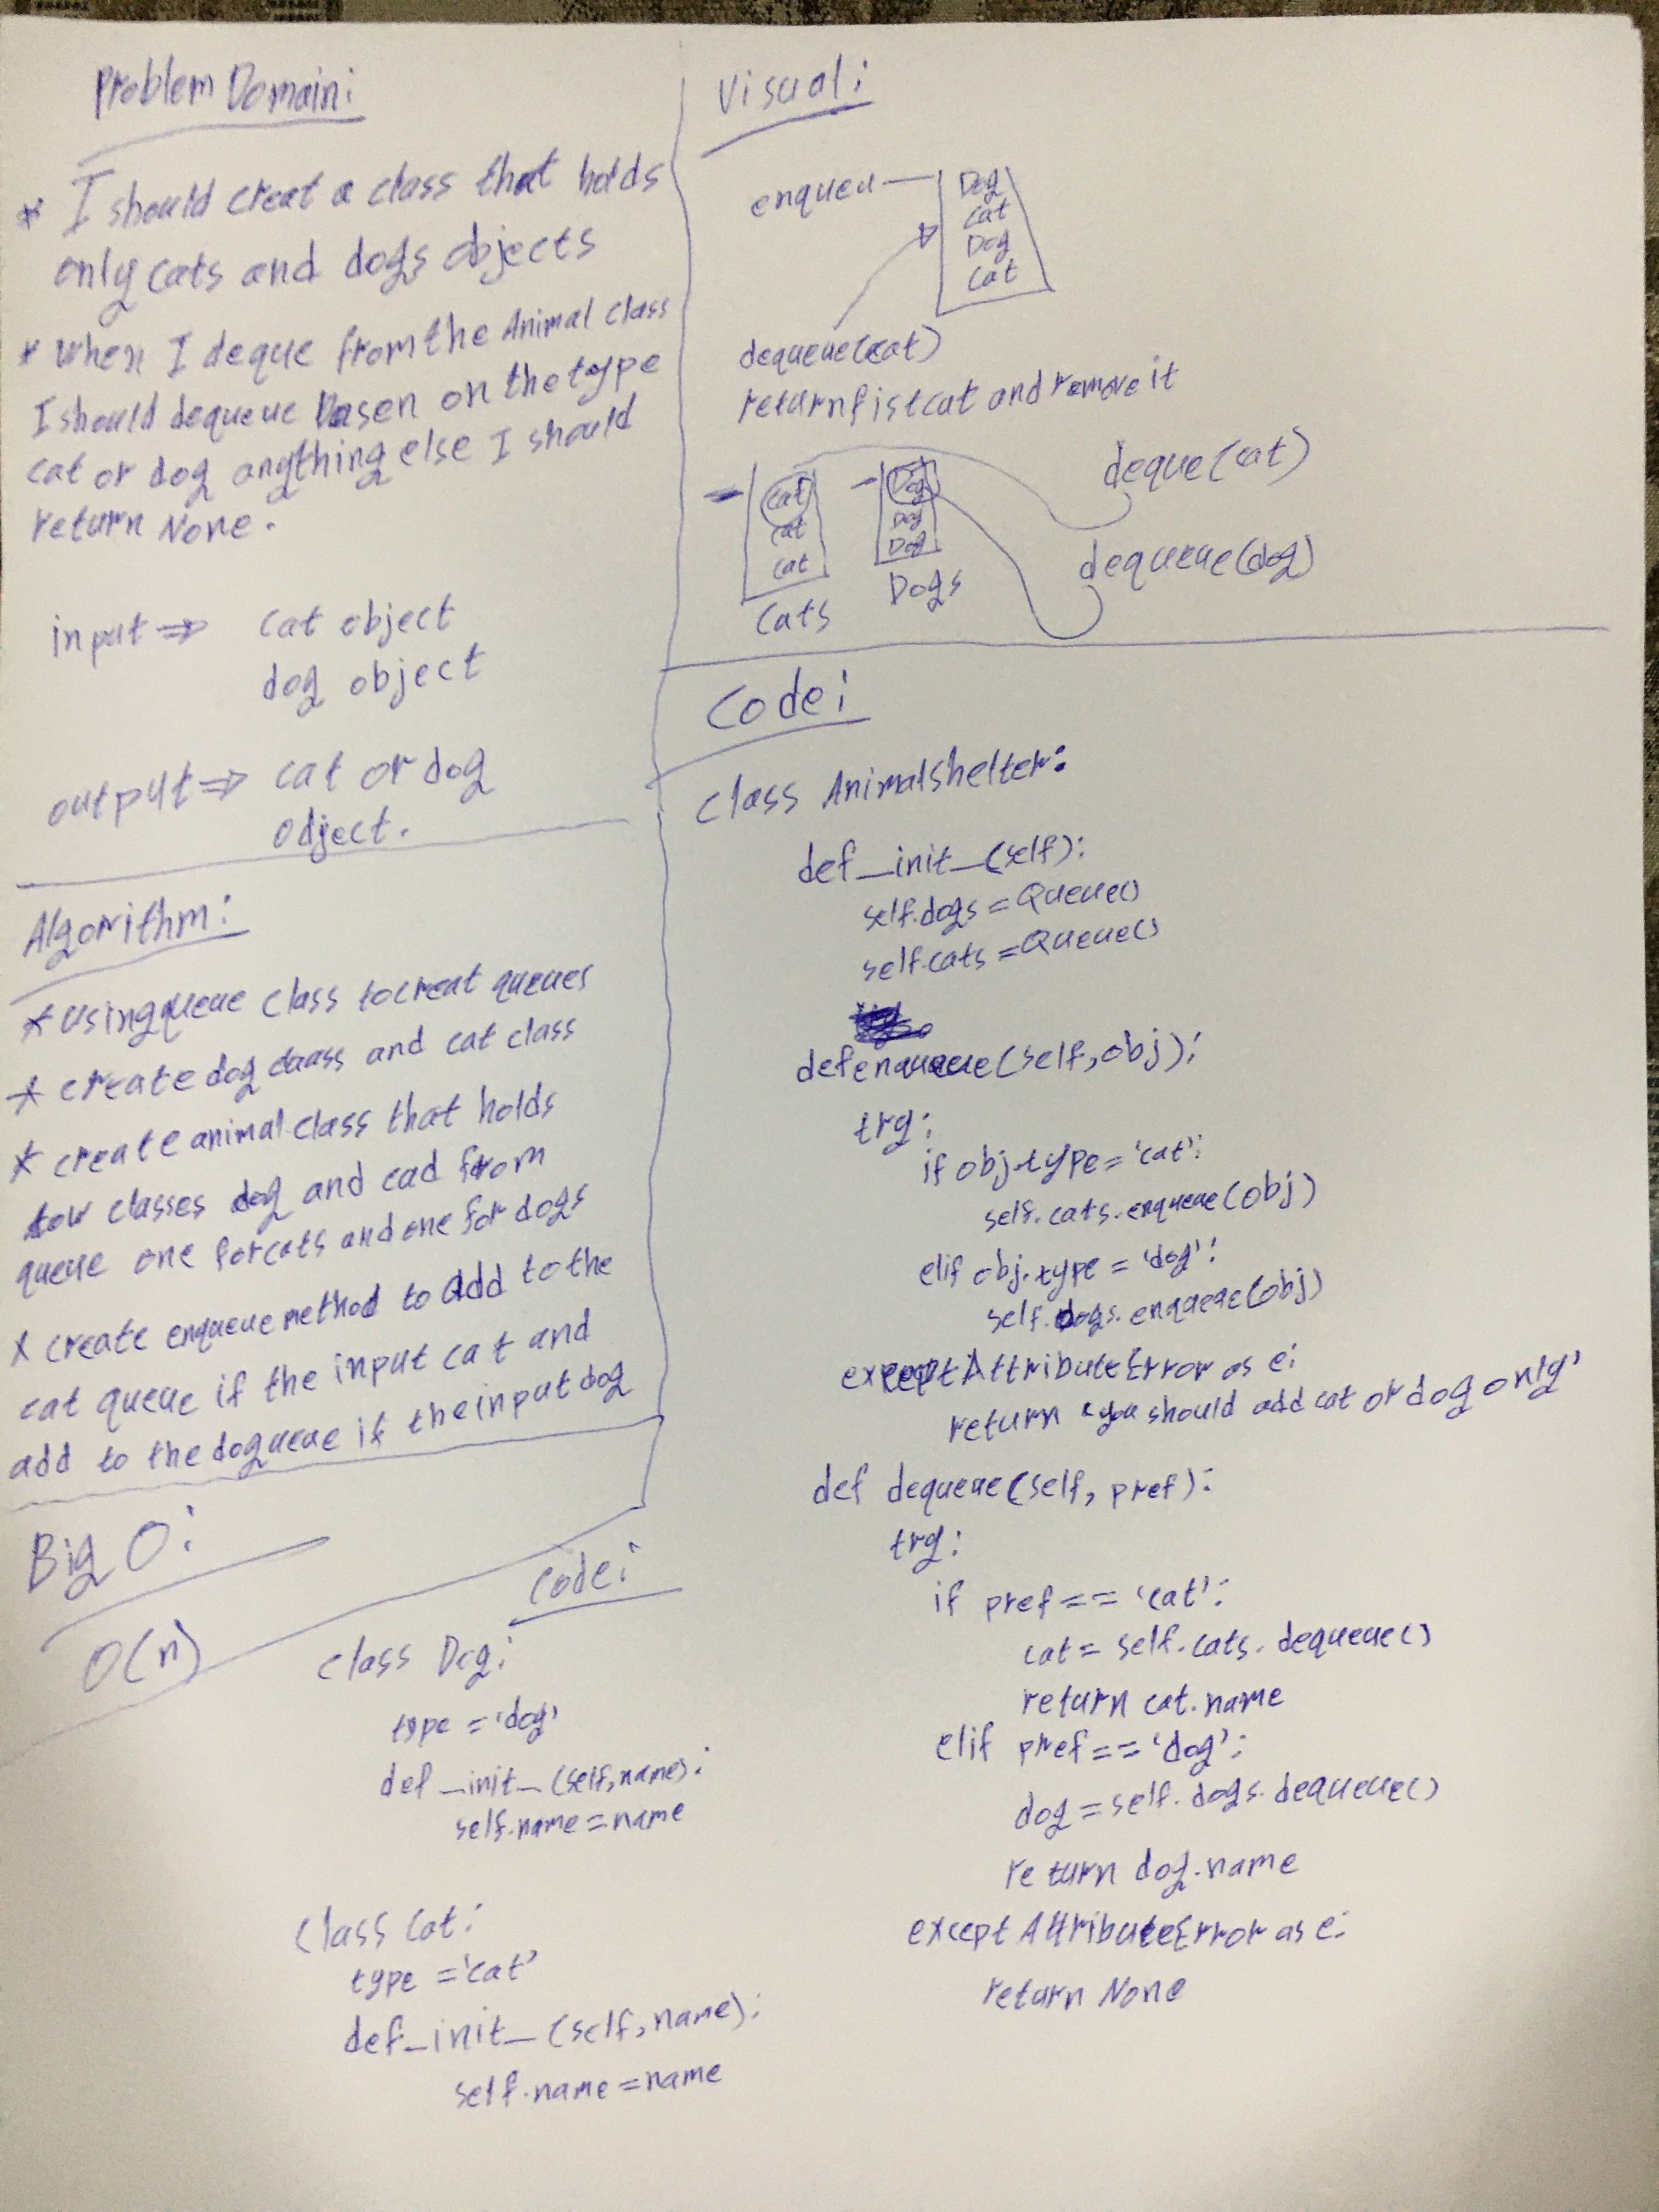 Problem Domain:
* I should creat a class that holds
only cats and dogs objects
* when I deque from the Animal class
I should dequeue basen on the type
cat or dog anything else I should
return None.
input ⇒ cat object
dog object
output ⇒ cat or dog
object.
Algorithm:
* using queue class to creat queues
* create dog class and cat class
* create animal class that holds
tow classes dog and cad from
queue one for cats and one for dogs
* create enqueue method to add to the
cat queue if the input cat and
add to the dog queue if the input dog
Big O:
O(n)
Visual:
enqueu
Dog
Cat
Dog
Cat
dequeue(cat)
return fist cat and remove it
Cat
Cat
Cat
Cats
Dog
Dog
Dog
Dogs
deque(cat)
dequeue(dog)
Code:
class Dog:
type = 'dog'
def _init_ (self, name):
self.name = name
class Cat:
type = 'cat'
def _init_ (self, name):
self.name = name
Code:
class AnimalShelter:
def _init_ (self):
self.dogs = Queue()
self.cats = Queue()
def enqueue(self, obj):
try:
if obj.type = 'cat':
self.cats.enqueue(obj)
elif obj.type = 'dog':
self.dogs.enqueue(obj)
except AttributeError as e:
return 'you should add cat or dog only'
def dequeue(self, pref):
try:
if pref == 'cat':
cat = self.cats.dequeue()
return cat.name
elif pref == 'dog':
dog = self.dogs.dequeue()
return dog.name
except AttributeError as e:
return None